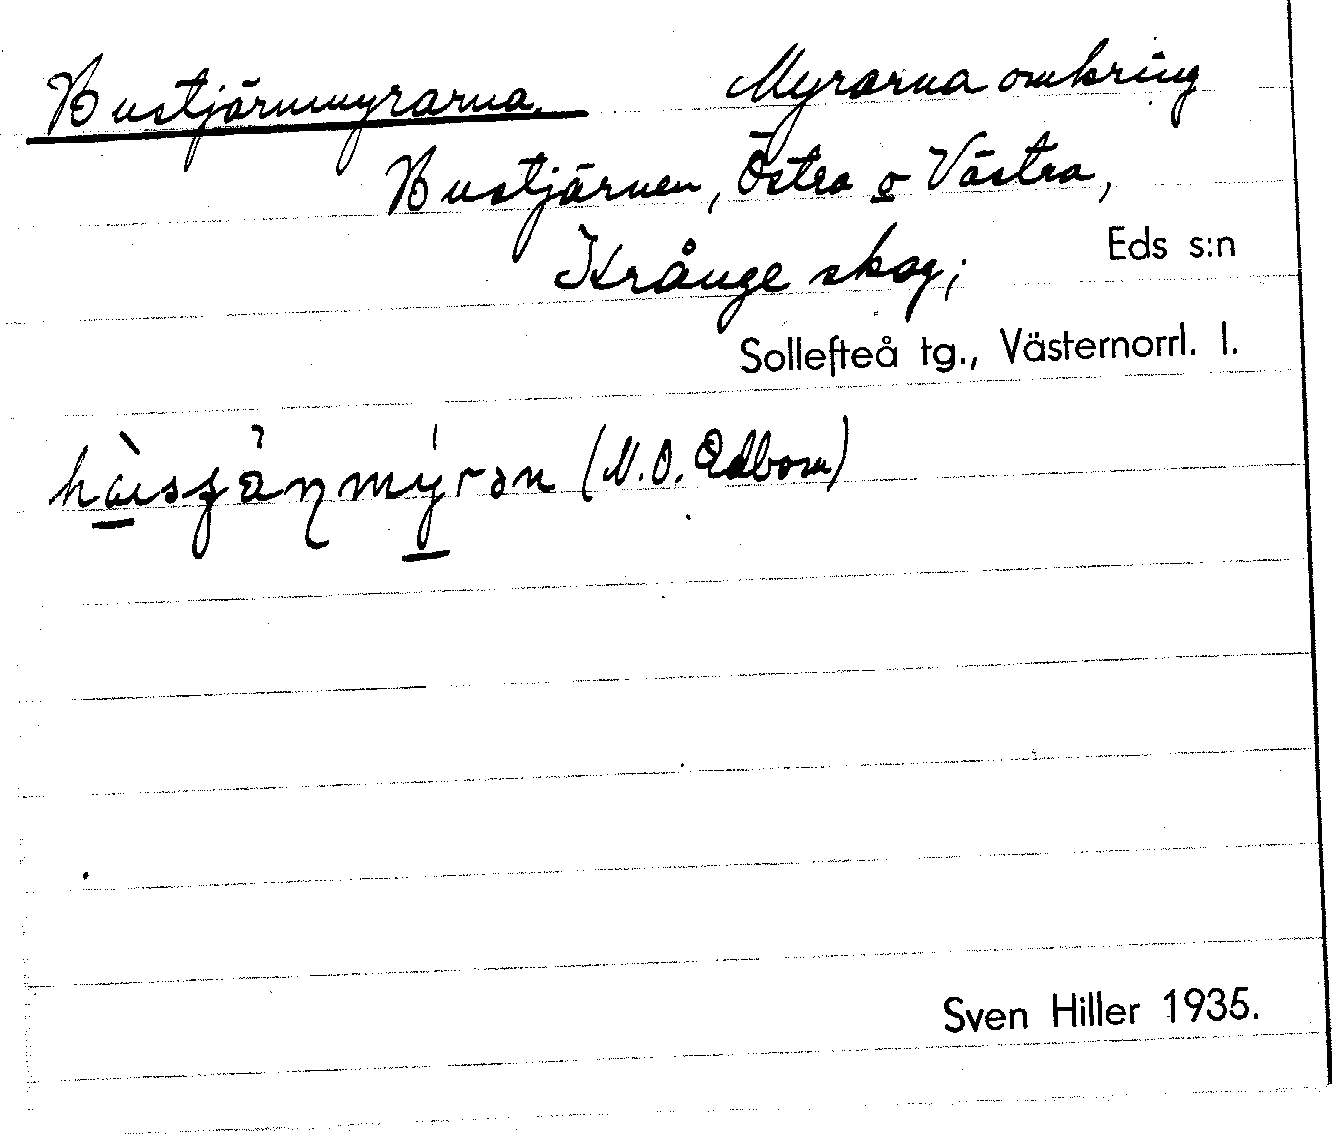 Bustjärnmyrarna. Myrarna omkring
Bustjärnen, Östra o Västra,
Krånge skog; Eds s:n
Sollefteå tg., Västernorrl. l.
(N.O. Edbom)
Sven Hiller 1935.